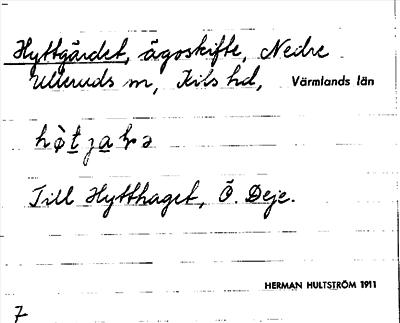 Hyttgärdet, ägoskifte, Nedre
Ulleruds sn, Kils hd, Värmlands län
Till Hytthaget, Ö. Deje.
HERMAN HULTSTRÖM 1911
7